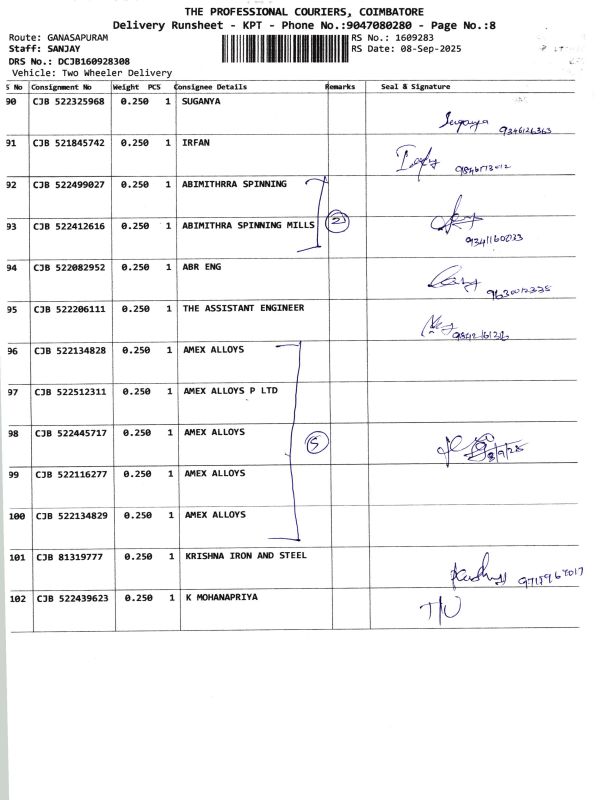 THE PROFESSIONAL COURIERS, COIMBATORE
Delivery Runsheet - KPT - Phone No.:9047080280 - Page No.:8
Route: GANASAPURAM RS No.: 1609283
Staff: SANJAY RS Date: 08-Sep-2025
DRS No.: DCJB160928308
Vehicle: Two Wheeler Delivery
S No Consignment No Weight PCS Consignee Details Remarks Seal & Signature
90 CJB 522325968 0.250 1 SUGANYA
Suganya 9346126363
91 CJB 521845742 0.250 1 IRFAN
92 CJB 522499027 0.250 1 ABIMITHRRA SPINNING
93 CJB 522412616 0.250 1 ABIMITHRA SPINNING MILLS 2
94 CJB 522082952 0.250 1 ABR ENG
95 CJB 522206111 0.250 1 THE ASSISTANT ENGINEER
96 CJB 522134828 0.250 1 AMEX ALLOYS
97 CJB 522512311 0.250 1 AMEX ALLOYS P LTD
98 CJB 522445717 0.250 1 AMEX ALLOYS 5
8/9/25
99 CJB 522116277 0.250 1 AMEX ALLOYS
100 CJB 522134829 0.250 1 AMEX ALLOYS
101 CJB 81319777 0.250 1 KRISHNA IRON AND STEEL
102 CJB 522439623 0.250 1 K MOHANAPRIYA